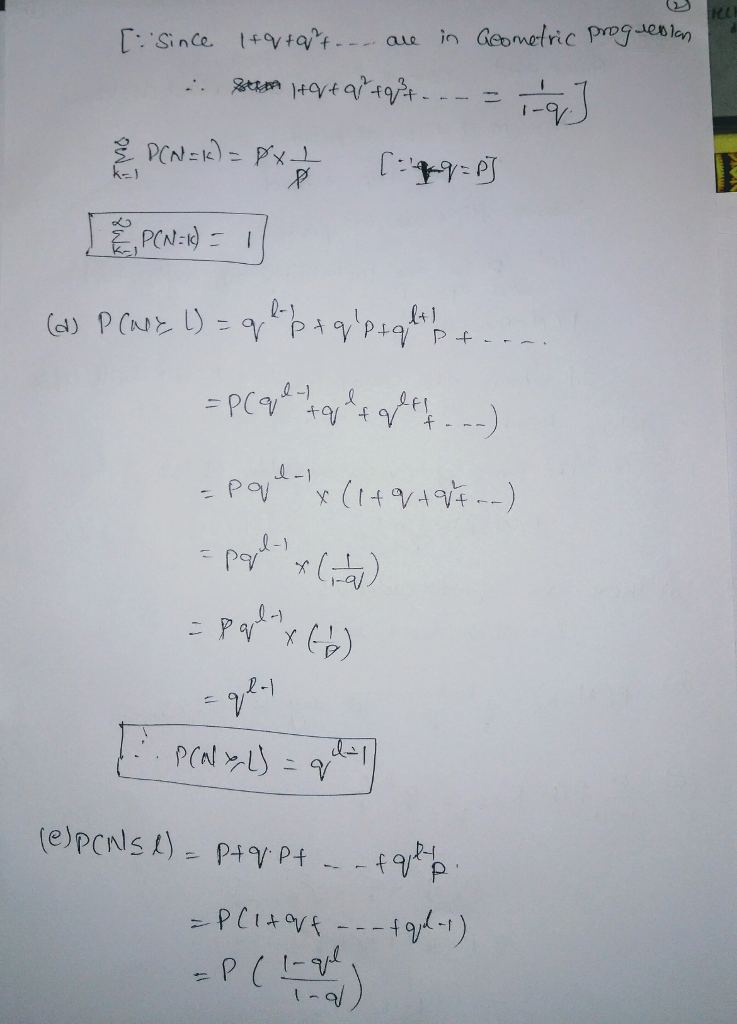 (2)
[∵ Since 1+q+q²+---- are in Geometric progression
∴ 1+q+q²+q³+---- = 1/(1-q)]
∞Σk=1 P(N=k) = p × 1/p [∵ 1-q=p]
∞Σk=1 P(N=k) = 1
(d) P(N≥L) = q^(l-1)p + q^l p + q^(l+1)p + .....
= P(q^(l-1) + q^l + q^(l+1) + ----)
= Pq^(l-1) × (1+q+q²+---)
= pq^(l-1) × (1/(1-q))
= Pq^(l-1) × (1/p)
= q^(l-1)
∴ P(N≥L) = q^(l-1)
(e) P(N≤l) = P+q.P+ --- +q^(l-1)p.
= P(1+q+ ---- +q^(l-1))
= P((1-q^l)/(1-q))